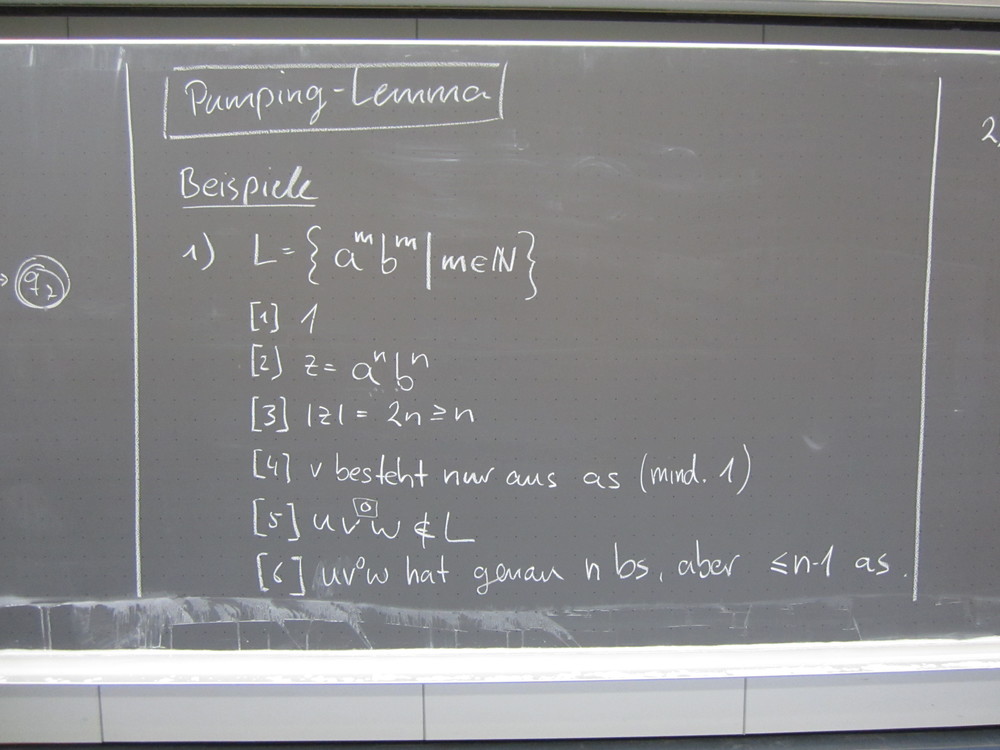 Pumping-Lemma
Beispiele
1) L = { a^m b^m | m ∈ ℕ }
[1] 1
[2] z = a^n b^n
[3] |z| = 2n ≥ n
[4] v besteht nur aus as (mind. 1)
[5] uv^0w ∉ L
[6] uv^0w hat genau n bs, aber ≤ n-1 as.
q2
2)